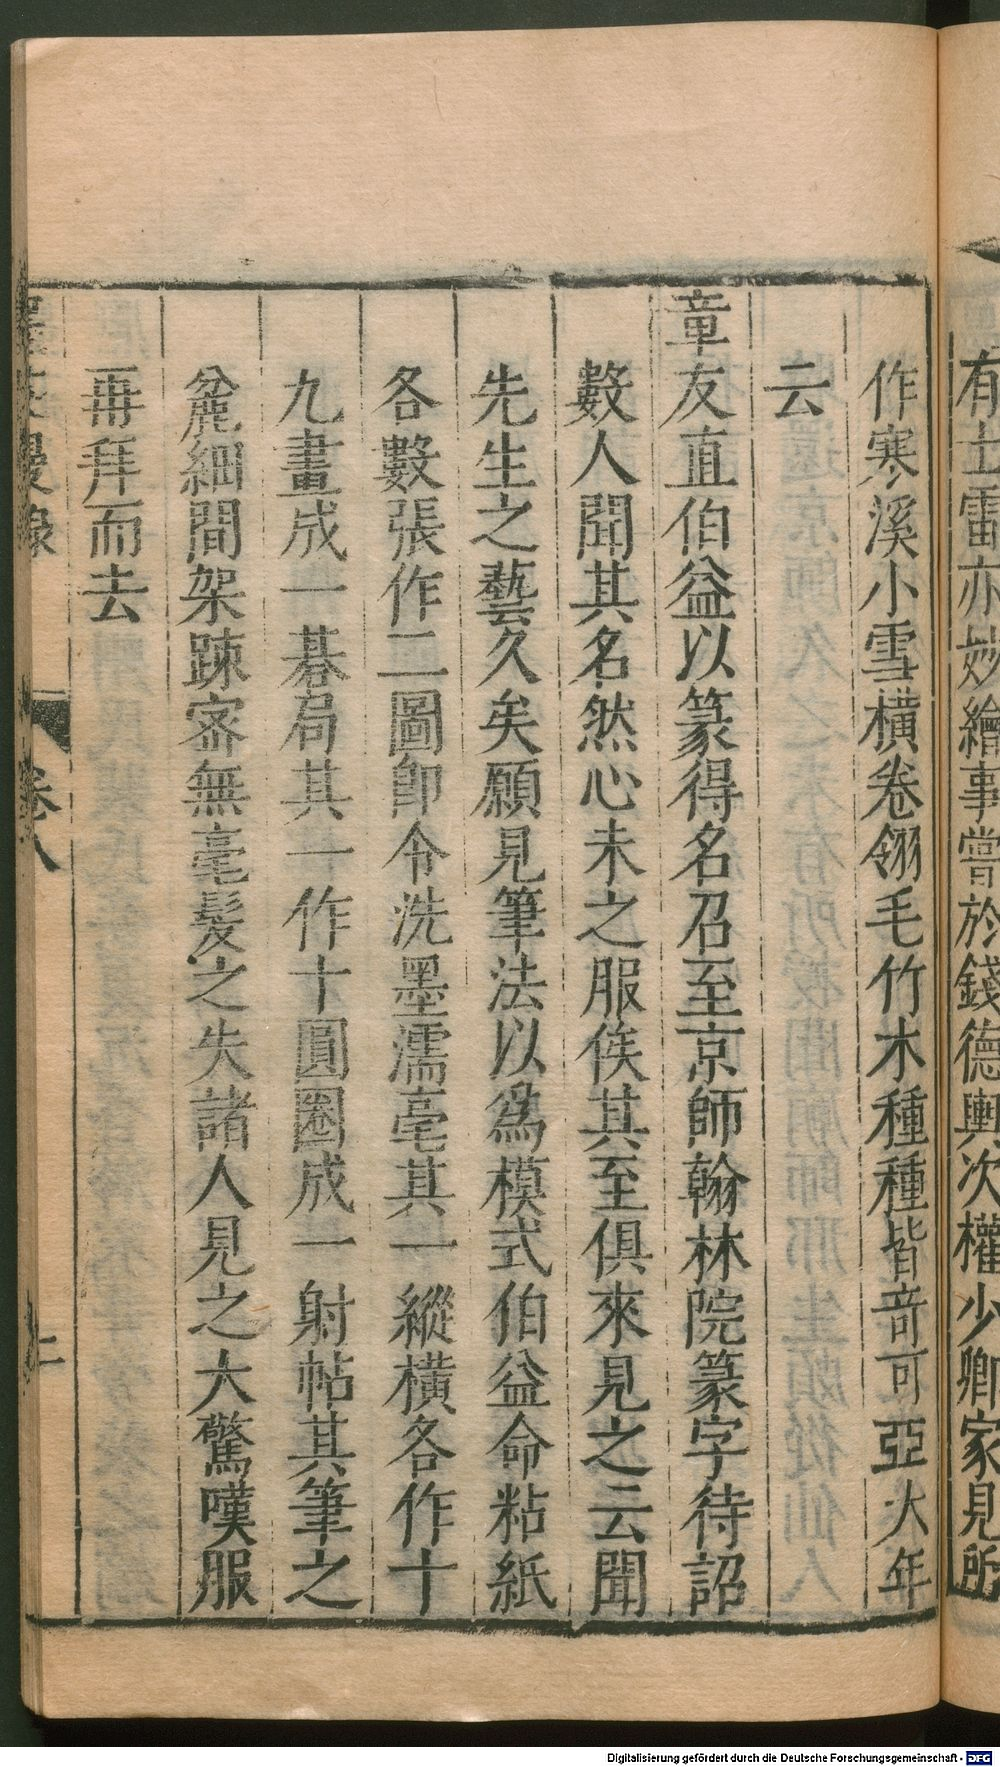 有士雷亦妙繪事嘗於錢德輿次權少卿家見所
作寒溪小雪橫卷翎毛竹木種種皆竒可亞大年
云
章友直伯益以篆得名召至京師翰林院篆字待詔
數人聞其名然心未之服俟其至俱來見之云聞
先生之藝久矣願見筆法以爲模式伯益命粘紙
各數張作二圖卽令洗墨濡毫其一縱橫各作十
九畫成一棊局其一作十圓圈成一射帖其筆之
麄細間架踈密無毫髮之失諸人見之大驚嘆服
再拜而去
卷八
Digitalisierung gefördert durch die Deutsche Forschungsgemeinschaft - DFG